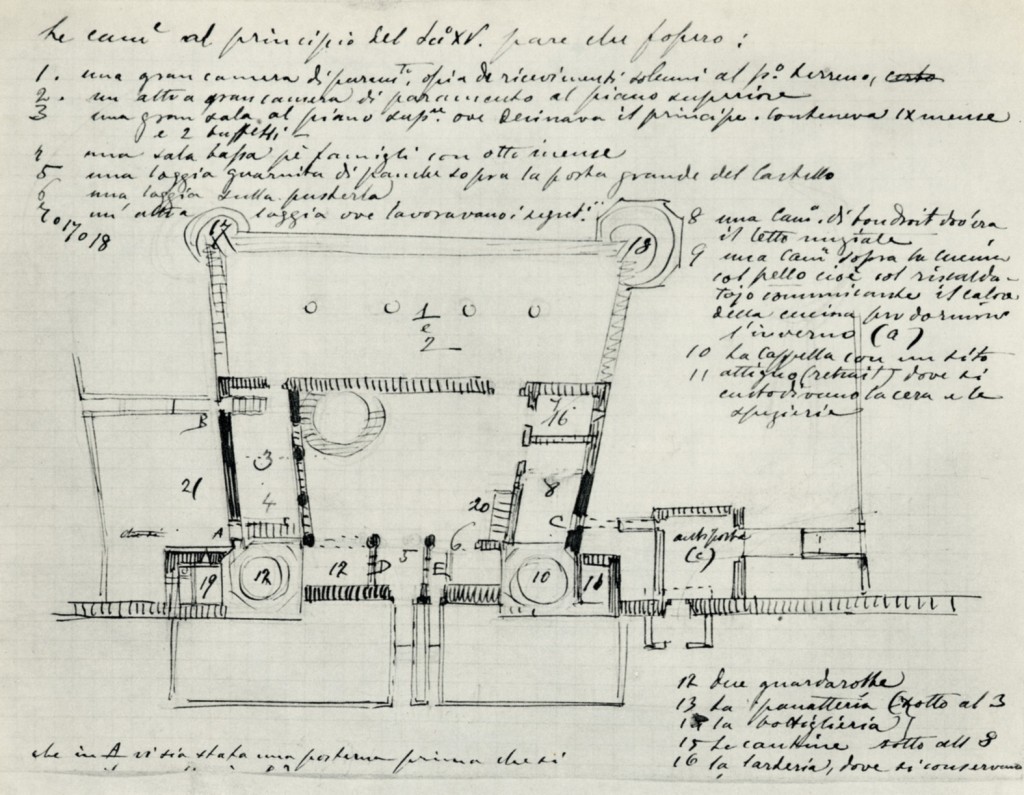 Le cam.e al principio del sec.o XV. pare che fossero:
1. una gran camera di param.to, ossia di ricevimenti solenni al p.o terreno,
2. un altra gran camera di paramento al piano superiore
3 una gran sala al piano sup.re ove desinava il principe. Conteneva IX mense
e 2 buffetti
4 una sala bassa pei famigli con otto mense
5 una loggia guarnita di panche sopra la porta grande del Castello
6 una loggia sulla pusterla
7 o 17 o 18 un'altra loggia ove lavoravano i segret.ri
8 una Cam.a di dov'era
il letto nuziale
9 una Cam.a sopra la cucina
col pello cioè col riscalda-
tojo communicante il calore
della cucina per dormirvi
l'inverno (a)
10 La Cappella con un sito
11 attiguo (retrait) dove si
custodivano la cera e le
spezierie
17
18
1 e 2
B
16
3
21
8
4
20
C
A
antiporta
(c)
5
6
19
12
12
D
E
10
12 due guardarobbe
13 La panatteria (sotto al 3
14 la bottiglieria)
15 Le cantine sotto all 8
16 la larderia, dove si conservano
che in A vi sia stata una posterna prima che si